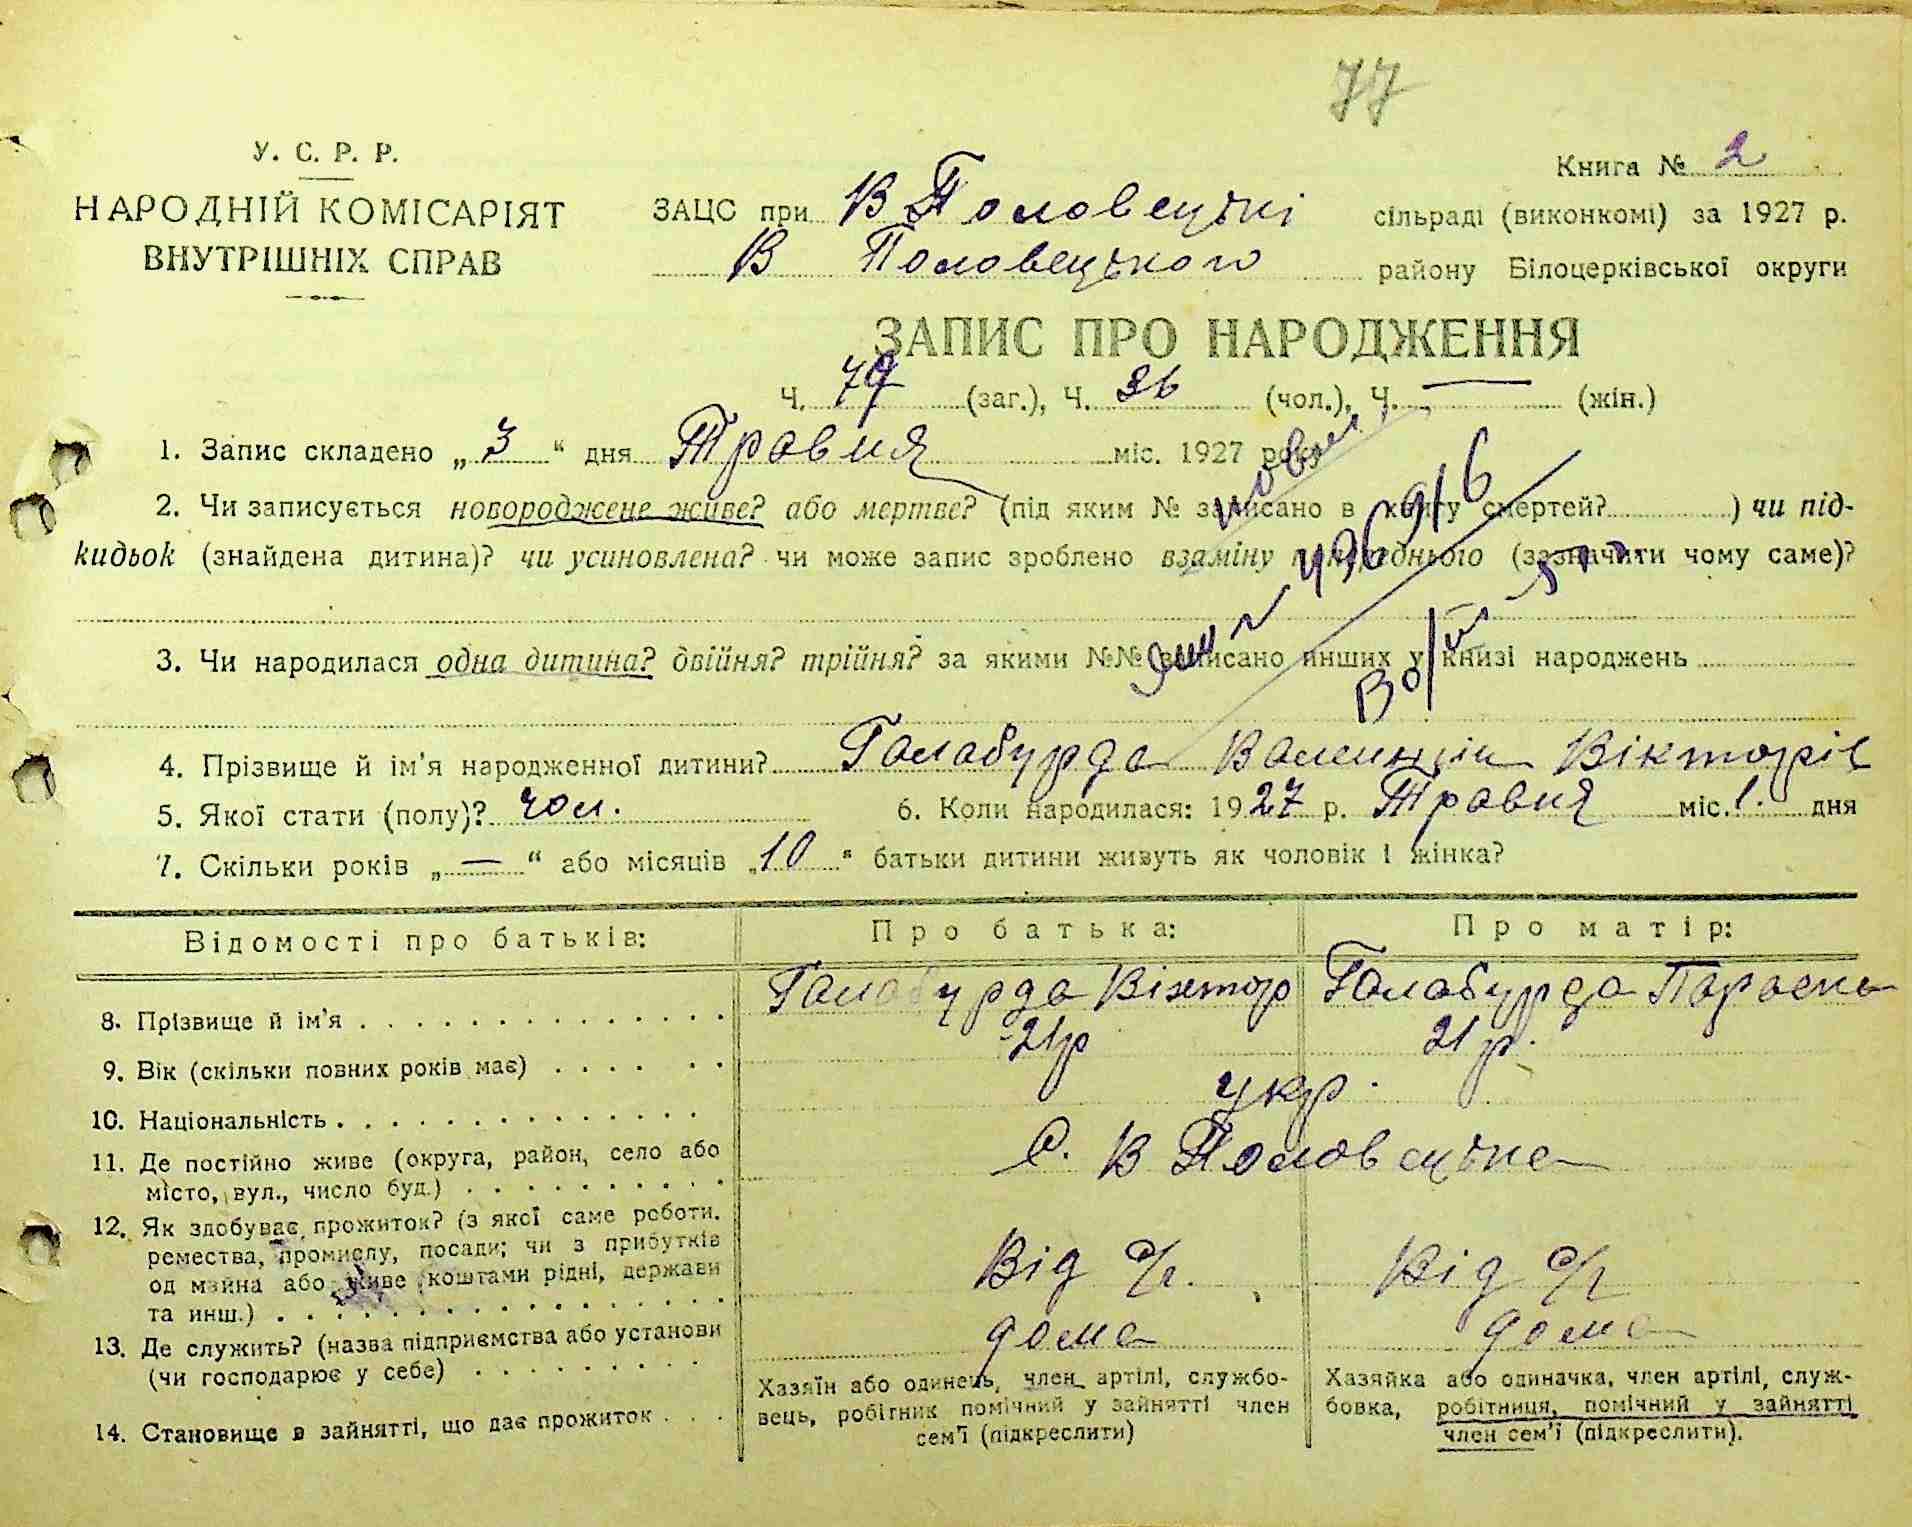 77
У. С. Р. Р.
НАРОДНІЙ КОМІСАРІЯТ
ВНУТРІШНІХ СПРАВ
Книга № 2
ЗАЦС при В Половецькі сільраді (виконкомі) за 1927 р.
В Половецького району Білоцерківської округи
ЗАПИС ПРО НАРОДЖЕННЯ
Ч. 79 (заг.), Ч. 36 (чол.), Ч. — (жін.)
1. Запис складено „3“ дня Травня міс. 1927 року
2. Чи записується новороджене живе? або мертве? (під яким № записано в книгу смертей? ) чи під-
кидьок (знайдена дитина)? чи усиновлена? чи може запис зроблено взаміну попереднього (зазначити чому саме)?
3. Чи народилася одна дитина? двійня? трійня? за якими №№ записано инших у книзі народжень
4. Прізвище й ім'я народженної дитини? Галабурда Валентін Вікторів
5. Якої стати (полу)? чол. 6. Коли народилася: 1927 р. Травня міс. 1. дня
7. Скільки років „—“ або місяців „10“ батьки дитини живуть як чоловік і жінка?
Відомості про батьків: Про батька: Про матір:
8. Прізвище й ім'я Галабурда Віктор Галабурда Параска
9. Вік (скільки повних років має) 21р 21 р.
10. Національність укр.
11. Де постійно живе (округа, район, село або
місто, вул., число буд.) С. В Половецьке
12. Як здобуває прожиток? (з якої саме роботи.
ремества, промислу, посади; чи з прибутків
од майна або живе коштами рідні, держави
та инш.) Від с/г. Від с/г
13. Де служить? (назва підприємства або установи
(чи господарює у себе) дома дома
14. Становище в зайнятті, що дає прожиток
Хазяїн або одинець, член артілі, службо-
вець, робітник помічний у зайнятті член
сем'ї (підкреслити)
Хазяйка або одиначка, член артілі, служ-
бовка, робітниця, помічний у зайнятті
член сем'ї (підкреслити).